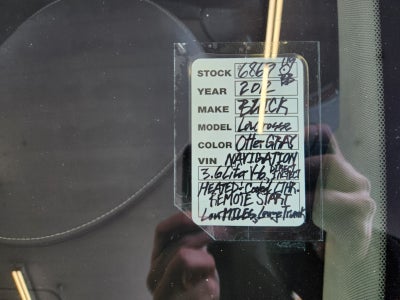 STOCK 6867
YEAR 2012
MAKE BUICK
MODEL Lacrosse
COLOR Otter GRAY
VIN NAVIGATION
3.6 Liter V-6 DIRECT INJECT
HEATED Cooled LTHR.
REMOTE START
Low MILES, Large Trunk